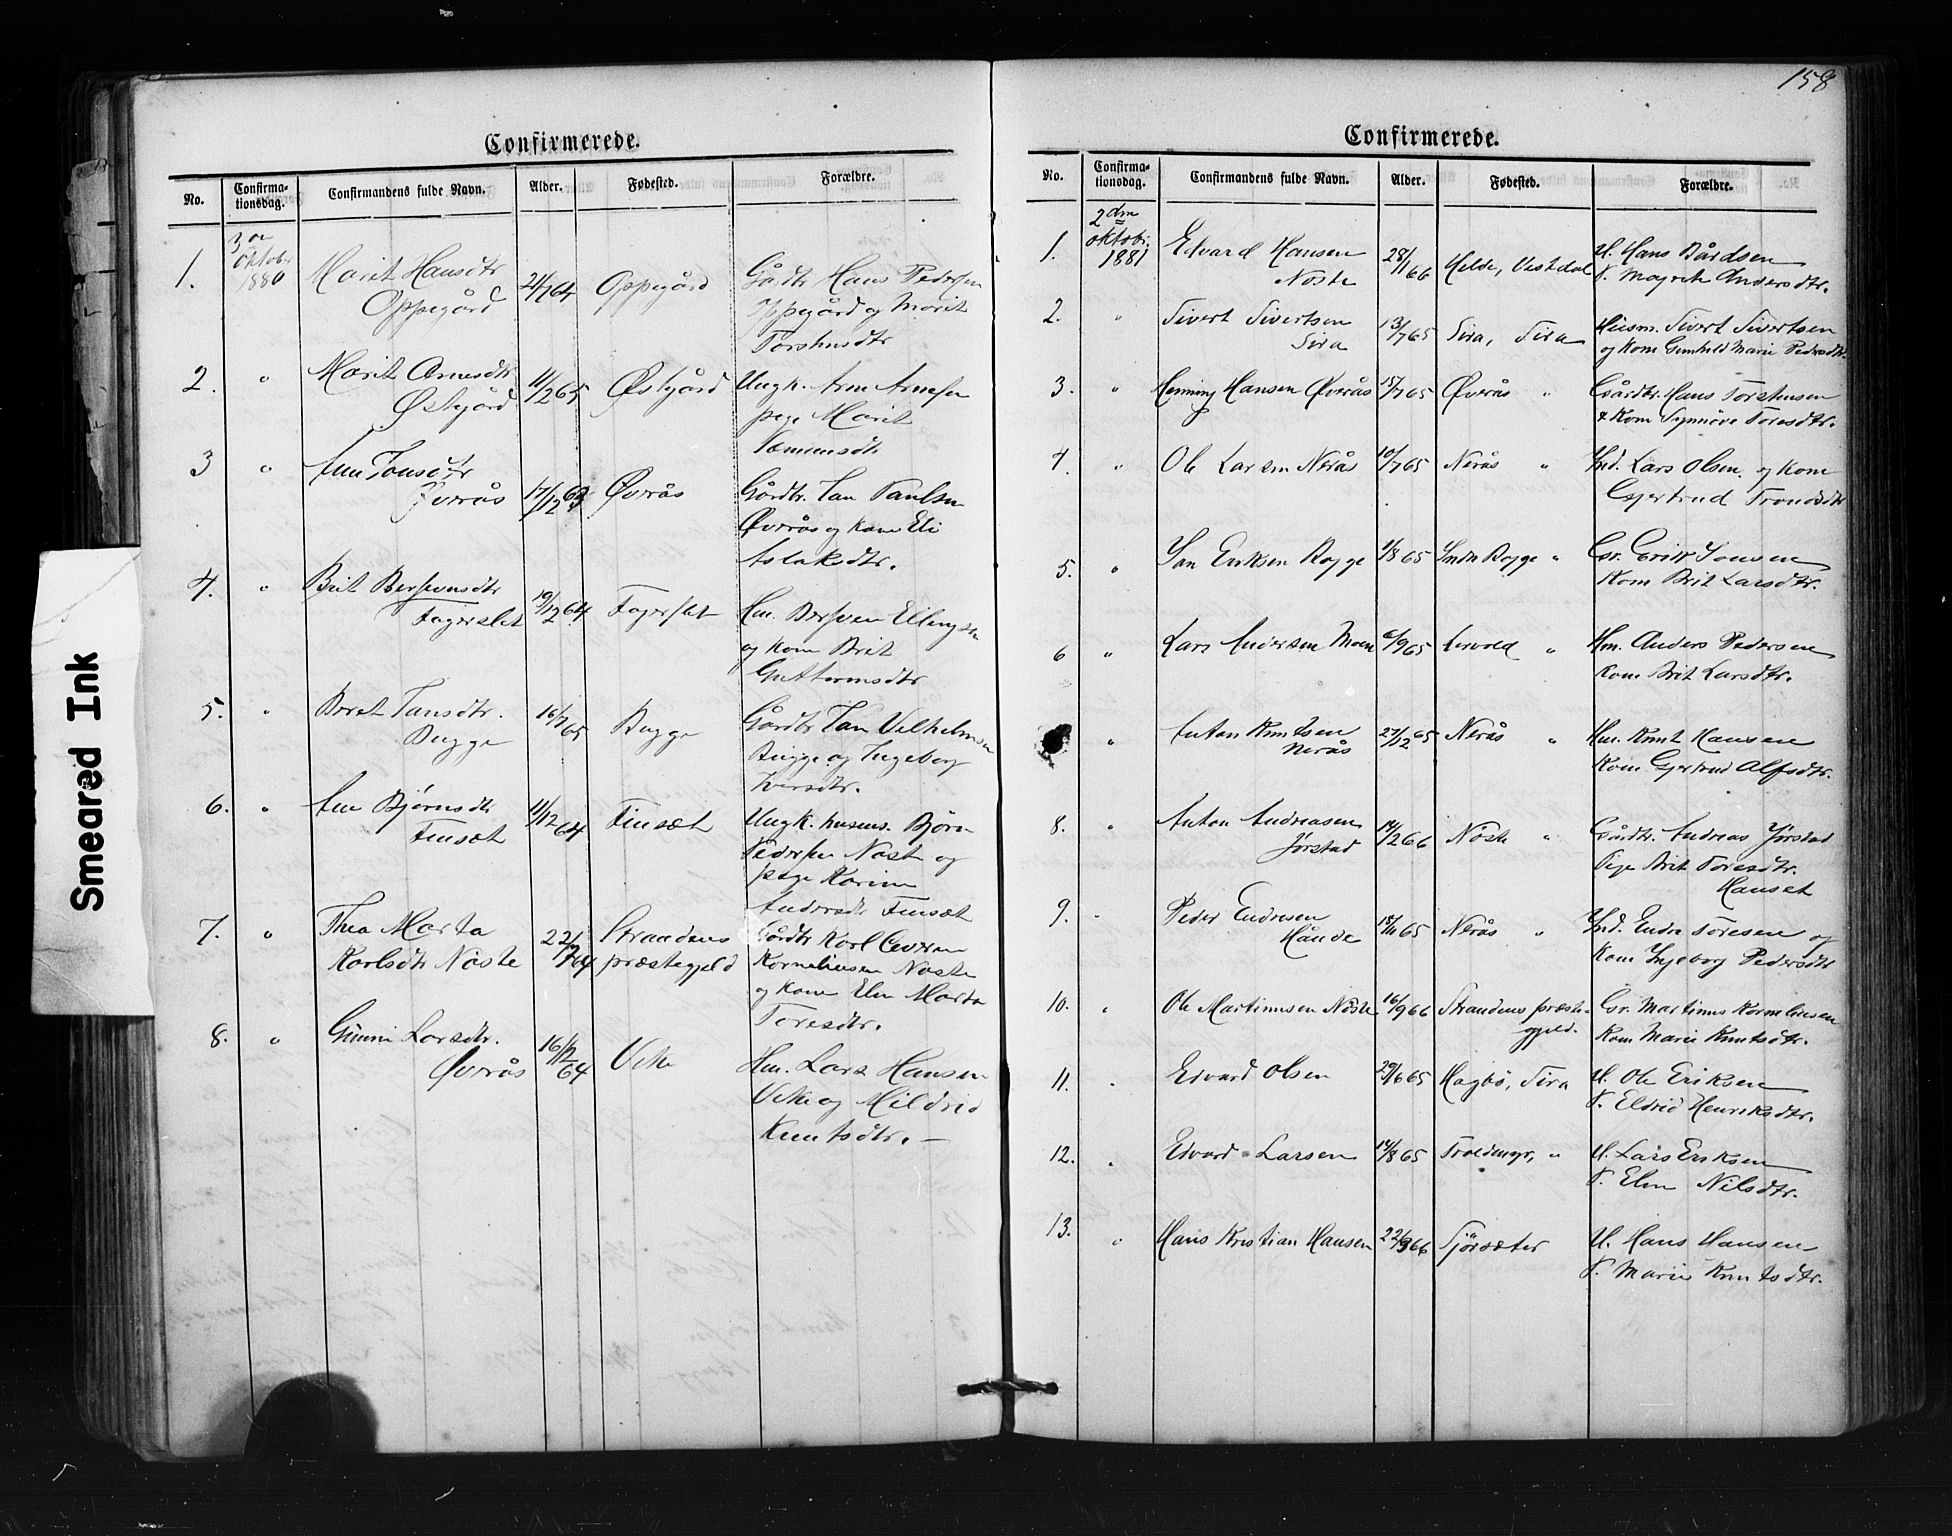 158
Confirmerede.
No. Confirma-tionsdag. Confirmandens fulde Navn. Alder. Fødested. Forældre.
1. 3die Oktobr 1880 Marit Hansdtr Oppegård 24/7 64 Oppegård Gårdbr Hans Pedersen
Oppegård og Marit
Torstensdtr
2. " Marit Arnesdtr Østigård 11/2 65 Østigård Ungk. Arn Arnesen
pige Marit
3 " Ane Jonsdtr Øvrås 17/12 63 Øvrås Gårdbr Jan Paulsen
Øvrås og Kone Eli
Aslaksdtr.
4. " Brit Bersvensdtr Fagerslet 19/12 64 Fagerslet Hm. Bersven Ellingsen
og Kone Brit
Guttormsdtr
5. " Beret Jansdtr. Bugge 16/7 65 Bugge Gårdbr Jan Vilhelmsen
Bugge og Ingeborg
Iversdtr.
6. " Ane Bjørnsdtr Finsæt 11/12 64 Finsæt Ungk. husms. Bjørn
Pedersen Nøste og
pige Karin
Andersdtr Finsæt
7. " Thea Marta Karlsdtr Nøste 22/7 64 Strandens præstegjeld Gårdbr Karl Cevrin
Korneliusen Nøste
og Kone Elen Marta
Toresdtr.
8. " Gunni Larsdtr. Øvrås 16/12 64 Vike Hm. Lars Hansen
Vike og Mildrid
Knutsdtr. —
Confirmerede.
No. Confirma-tionsdag. Confirmandens fulde Navn. Alder. Fødested. Forældre.
1. 2den oktobr. 1881 Edvard Hansen Nøste 28/1 66 Helde, Vistdal U. Hans Bårdsen
P. Magrete Andersdtr.
2. " Sivert Sivertsen Sira 13/7 65 Sira, Sira Husm. Sivert Sivertsen
og Kone Gunhild Marie Pedersdtr.
3. " Henning Hansen Øverås 15/7 65 Øverås " Gårdbr. Hans Torstensen
& Kone Synnøve Toresdtr.
4. " Ole Larsen Nerås 10/7 65 Nerås " Ind. Lars Olsen og Kone
Gjertrud Trondsdtr
5. " Jon Eriksen Bugge 1/8 65 Indr Bugge " Gr. Erik Jonsen
Kone Brit Larsdtr.
6 " Lars Andersen Moen 6/9 65 Lervold " Hm. Anders Pedersen
Kone Brit Larsdtr.
" Anton Knutsen Nerås 27/12 65 Nerås " Hm. Knut Hansen
Kone Gjertrud Alfsdtr.
8. " Anton Andreasen Jørstad 14/2 66 Nøste " Gårdbr. Andreas Jørstad
Pige Brit Toresdtr.
Hanset
9. " Peder Endresen Hånde 18/11 65 Nerås " Ind. Endre Toresen og
Kone Ingeborg Pedersdtr
10. " Ole Martinusen Nøste 16/9 66 Strandens præstegjeld. Gr. Martinus Korneliusen
Kone Marie Knutsdtr.
11. " Edvard Olsen 29/6 65 Hagbø, Sira U. Ole Eriksen
P. Eldrid Henriksdtr.
12. " Edvard Larsen 14/8 65 Troldmyr, " U. Lars Eriksen
P. Elen Nilsdtr.
13. " Hans Kristian Hansen 22/3 66 Sjørsæter U. Hans Hansen
P. Marie Knutsdtr.
Smeared Ink